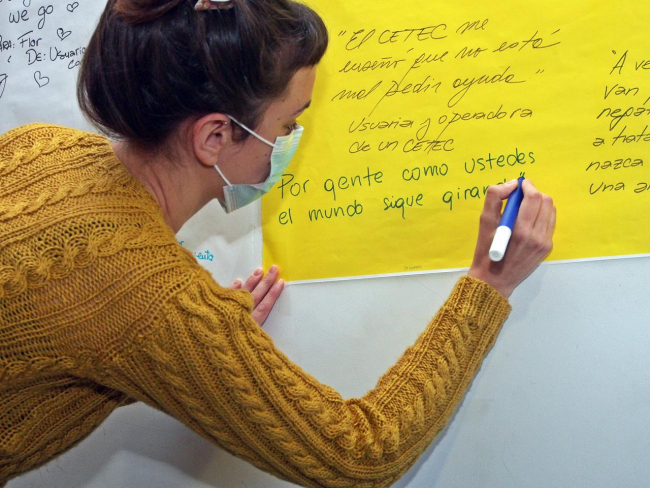 we go
Flor
DE: Usuaria
"El CETEC me
enseñó que no está
mal pedir ayuda"
Usuaria y operadora
de un CETEC
Por gente como ustedes
el mundo sigue
"A ve
van
a trata
nazca
una